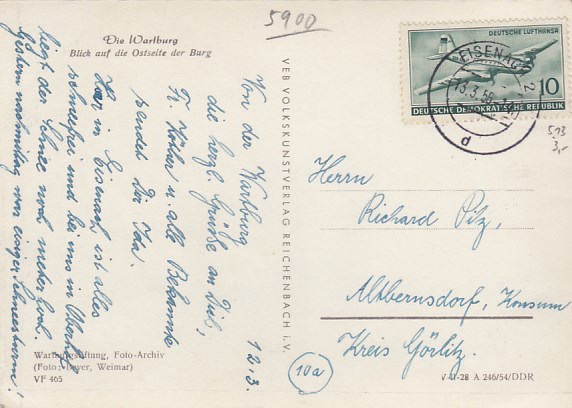 5900
Die Wartburg
Blick auf die Ostseite der Burg
DEUTSCHE LUFTHANSA
10
DEUTSCHE DEMOKRATISCHE REPUBLIK
EISENACH 2
13.3.56
d
5,13
3,-
VEB VOLKSKUNSTVERLAG REICHENBACH i. V.
12.3.
Von der Wartburg
die herzl. Grüße an Dich,
Fr. u. alle Bekannte
sendet Dir Ina.
Hier in Eisenach ist alles
schneefrei und bei uns in
liegt der Schnee noch meterhoch.
Gestern nachmittag war einiger Schneesturm!
Herrn
Richard Pilz,
Altbernsdorf, Konsum
Kreis Görlitz.
10a
Wartburgstiftung, Foto-Archiv
(Foto: Beyer, Weimar)
VF 465
V-11-28 A 246/54/DDR